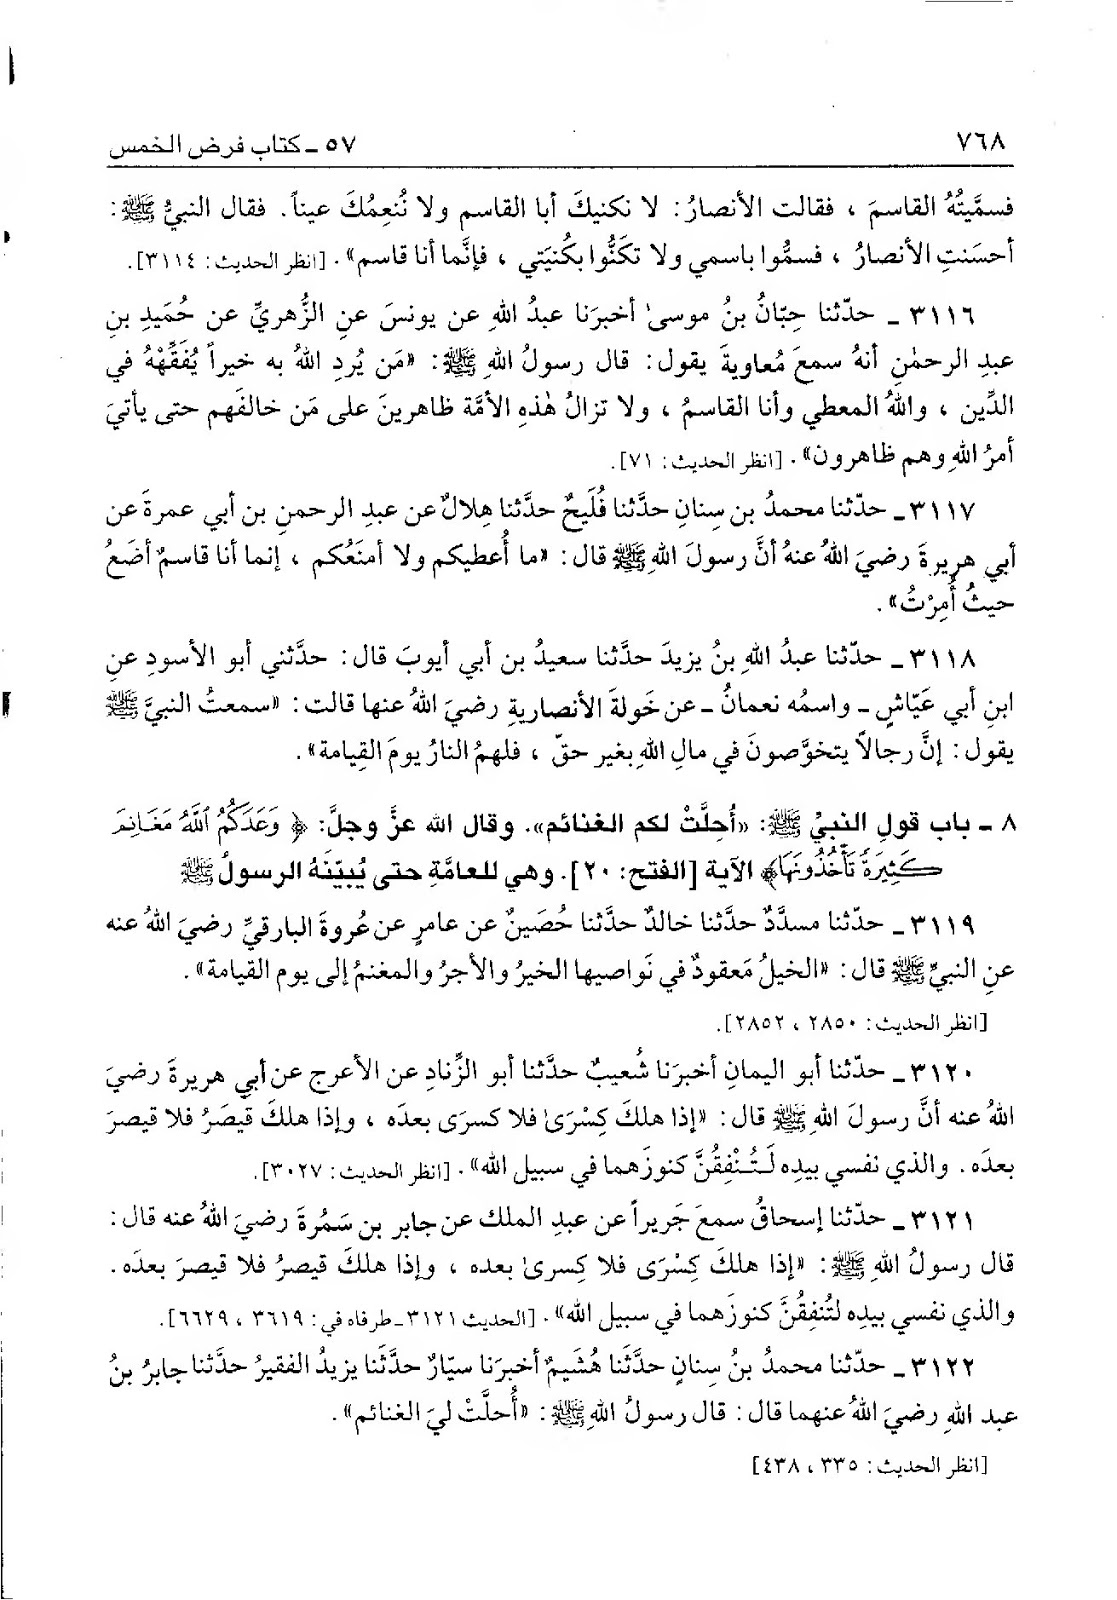 ٧٦٨
٥٧ ـ كتاب فرض الخمس
فسمَّيتُهُ القاسمَ ، فقالت الأنصارُ: لا نكنيكَ أبا القاسم ولا نُنعِمُكَ عيناً. فقال النبيُّ ﷺ:
أحسَنتِ الأنصارُ ، فسمُّوا باسمي ولا تكَنُّوا بكُنيَتي ، فإنَّما أنا قاسم». [انظر الحديث: ٣١١٤].
٣١١٦ ـ حدّثنا حِبّانُ بنُ موسىٰ أخبرَنا عبدُ اللهِ عن يونسَ عنِ الزُّهريِّ عن حُمَيدِ بنِ
عبدِ الرحمٰنِ أنهُ سمعَ مُعاويةَ يقول: قال رسولُ اللهِ ﷺ: «مَن يُردِ اللهُ به خيراً يُفَقِّهْهُ في
الدِّين ، واللهُ المعطي وأنا القاسمُ ، ولا تزالُ هٰذهِ الأمَّة ظاهرينَ على مَن خالفَهم حتى يأتيَ
أمرُ اللهِ وهم ظاهرون». [انظر الحديث: ٧١].
٣١١٧ ـ حدّثنا محمدُ بن سِنانٍ حدَّثنا فُلَيحٌ حدَّثنا هِلالٌ عن عبدِ الرحمنِ بن أبي عمرةَ عن
أبي هريرةَ رضيَ اللهُ عنهُ أنَّ رسولَ اللهِ ﷺ قال: «ما أُعطيكم ولا أمنَعُكم ، إنما أنا قاسمٌ أضَعُ
حيثُ أُمِرْتُ».
٣١١٨ ـ حدّثنا عبدُ اللهِ بنُ يزيدَ حدَّثنا سعيدُ بن أبي أيوبَ قال: حدَّثني أبو الأسودِ عنِ
ابنِ أبي عَيّاشٍ ـ واسمُه نعمانُ ـ عن خَولةَ الأنصاريةِ رضيَ اللهُ عنها قالت: «سمعتُ النبيَّ ﷺ
يقول: إنَّ رجالاً يتخوَّصونَ في مالِ اللهِ بغير حقّ ، فلهمُ النارُ يومَ القِيامة».
٨ ـ باب قولِ النبيِّ ﷺ: «أُحِلَّتْ لكم الغنائم». وقال الله عزَّ وجلَّ: ﴿وَعَدَكُمُ ٱللَّهُ مَغَانِمَ
كَثِيرَةً تَأْخُذُونَهَا﴾ الآية [الفتح: ٢٠]. وهي للعامَّةِ حتى يُبيِّنَهُ الرسولُ ﷺ
٣١١٩ ـ حدّثنا مسدَّدٌ حدَّثنا خالدٌ حدَّثنا حُصَينٌ عن عامرٍ عن عُروةَ البارقيِّ رضيَ اللهُ عنه
عنِ النبيِّ ﷺ قال: «الخيلُ مَعقودٌ في نَواصيها الخيرُ والأجرُ والمغنمُ إلى يوم القيامة».
[انظر الحديث: ٢٨٥٠ ، ٢٨٥٢].
٣١٢٠ ـ حدّثنا أبو اليمانِ أخبرَنا شُعيبٌ حدَّثنا أبو الزِّنادِ عن الأعرج عن أبي هريرةَ رضيَ
اللهُ عنه أنَّ رسولَ اللهِ ﷺ قال: «إذا هلكَ كِسْرَىٰ فلا كسرَى بعدَه ، وإذا هلكَ قيصَرُ فلا قيصرَ
بعدَه. والذي نفسي بيدِه لَتُنْفِقُنَّ كنوزَهما في سبيل الله». [انظر الحديث: ٣٠٢٧].
٣١٢١ ـ حدّثنا إسحاقُ سمعَ جَريراً عن عبدِ الملك عن جابر بن سَمُرةَ رضيَ اللهُ عنه قال:
قال رسولُ اللهِ ﷺ: «إذا هلكَ كِسْرَى فلا كِسرىٰ بعده ، وإذا هلكَ قيصرُ فلا قيصرَ بعدَه.
والذي نفسي بيدِه لتُنفِقُنَّ كنوزَهما في سبيل الله». [الحديث ٣١٢١ ـ طرفاه في: ٣٦١٩ ، ٦٦٢٩].
٣١٢٢ ـ حدّثنا محمدُ بنُ سِنانٍ حدَّثَنا هُشَيمٌ أخبرَنا سيّارٌ حدَّثَنا يزيدُ الفقيرُ حدَّثَنا جابرُ بنُ
عبد اللهِ رضيَ اللهُ عنهما قال: قال رسولُ اللهِ ﷺ: «أُحلَّتْ ليَ الغنائم».
[انظر الحديث: ٣٣٥ ، ٤٣٨]